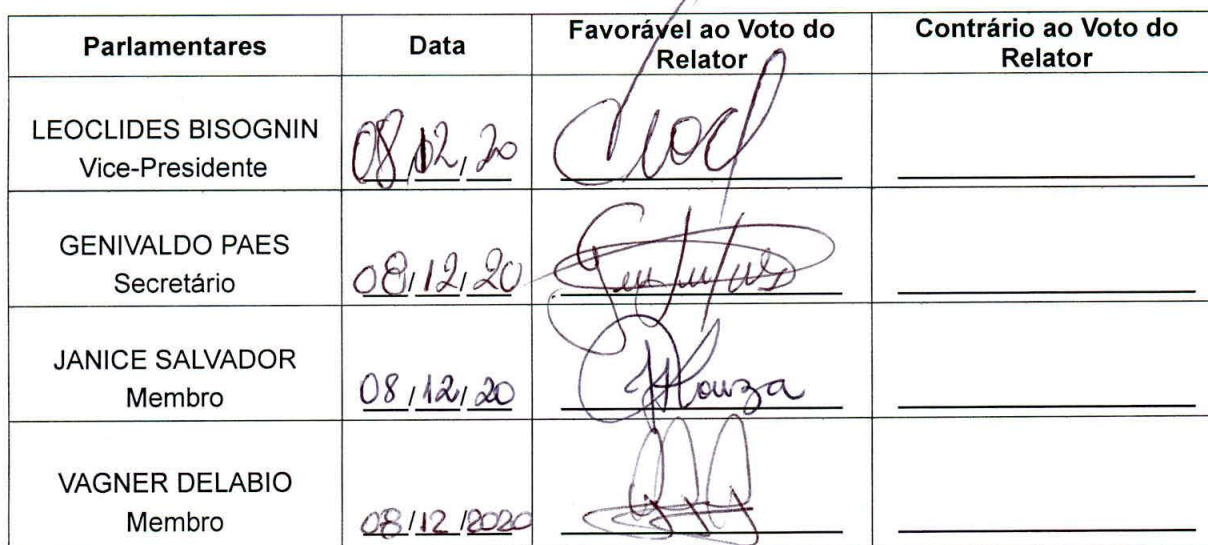 Parlamentares Data Favorável ao Voto do Relator Contrário ao Voto do Relator
LEOCLIDES BISOGNIN
Vice-Presidente 08/12/20
GENIVALDO PAES
Secretário 08/12/20
JANICE SALVADOR
Membro 08/12/20
VAGNER DELABIO
Membro 08/12/2020